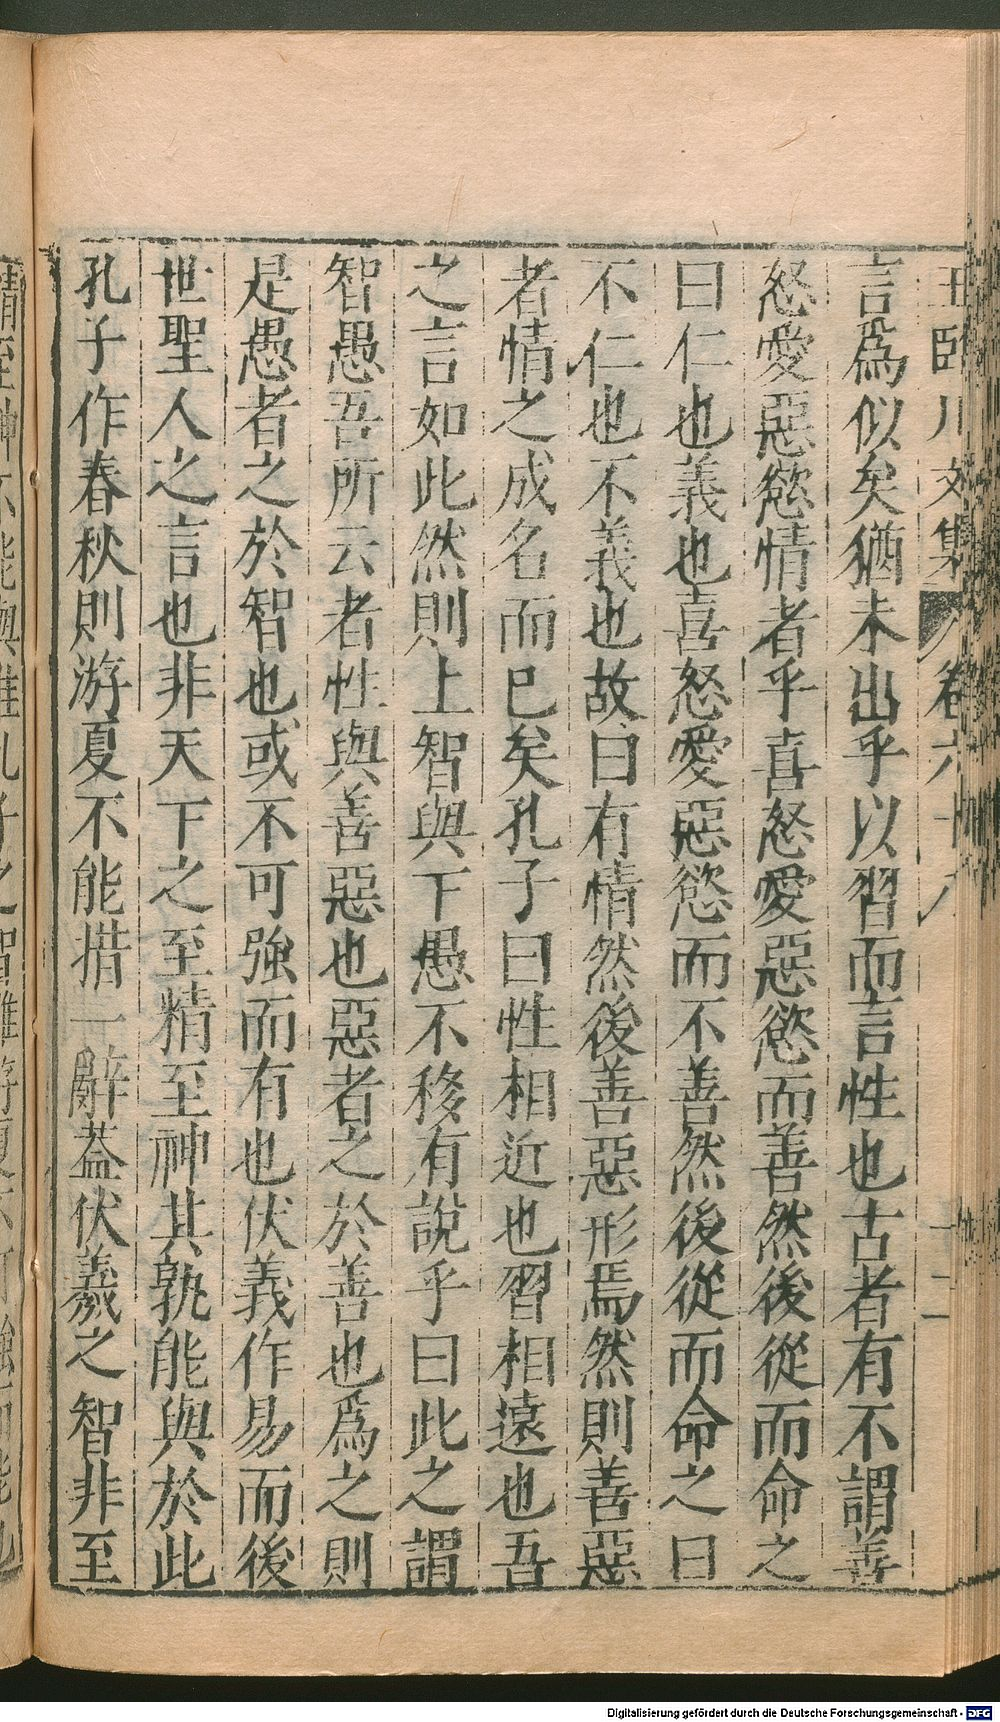 王臨川文集 卷六十八 十二
言爲似矣猶未出乎以習而言性也古者有不謂善
怒愛惡慾情者乎喜怒愛惡慾而善然後從而命之
曰仁也義也喜怒愛惡慾而不善然後從而命之曰
不仁也不義也故曰有情然後善惡形焉然則善惡
者情之成名而已矣孔子曰性相近也習相遠也吾
之言如此然則上智與下愚不移有說乎曰此之謂
智愚吾所云者性與善惡也惡者之於善也爲之則
是愚者之於智也或不可強而有也伏羲作易而後
世聖人之言也非天下之至精至神其孰能與於此
孔子作春秋則游夏不能措一辭葢伏羲之智非至
精至神不能與惟孔子之智雖游夏不可強而能也
Digitalisierung gefördert durch die Deutsche Forschungsgemeinschaft - DFG